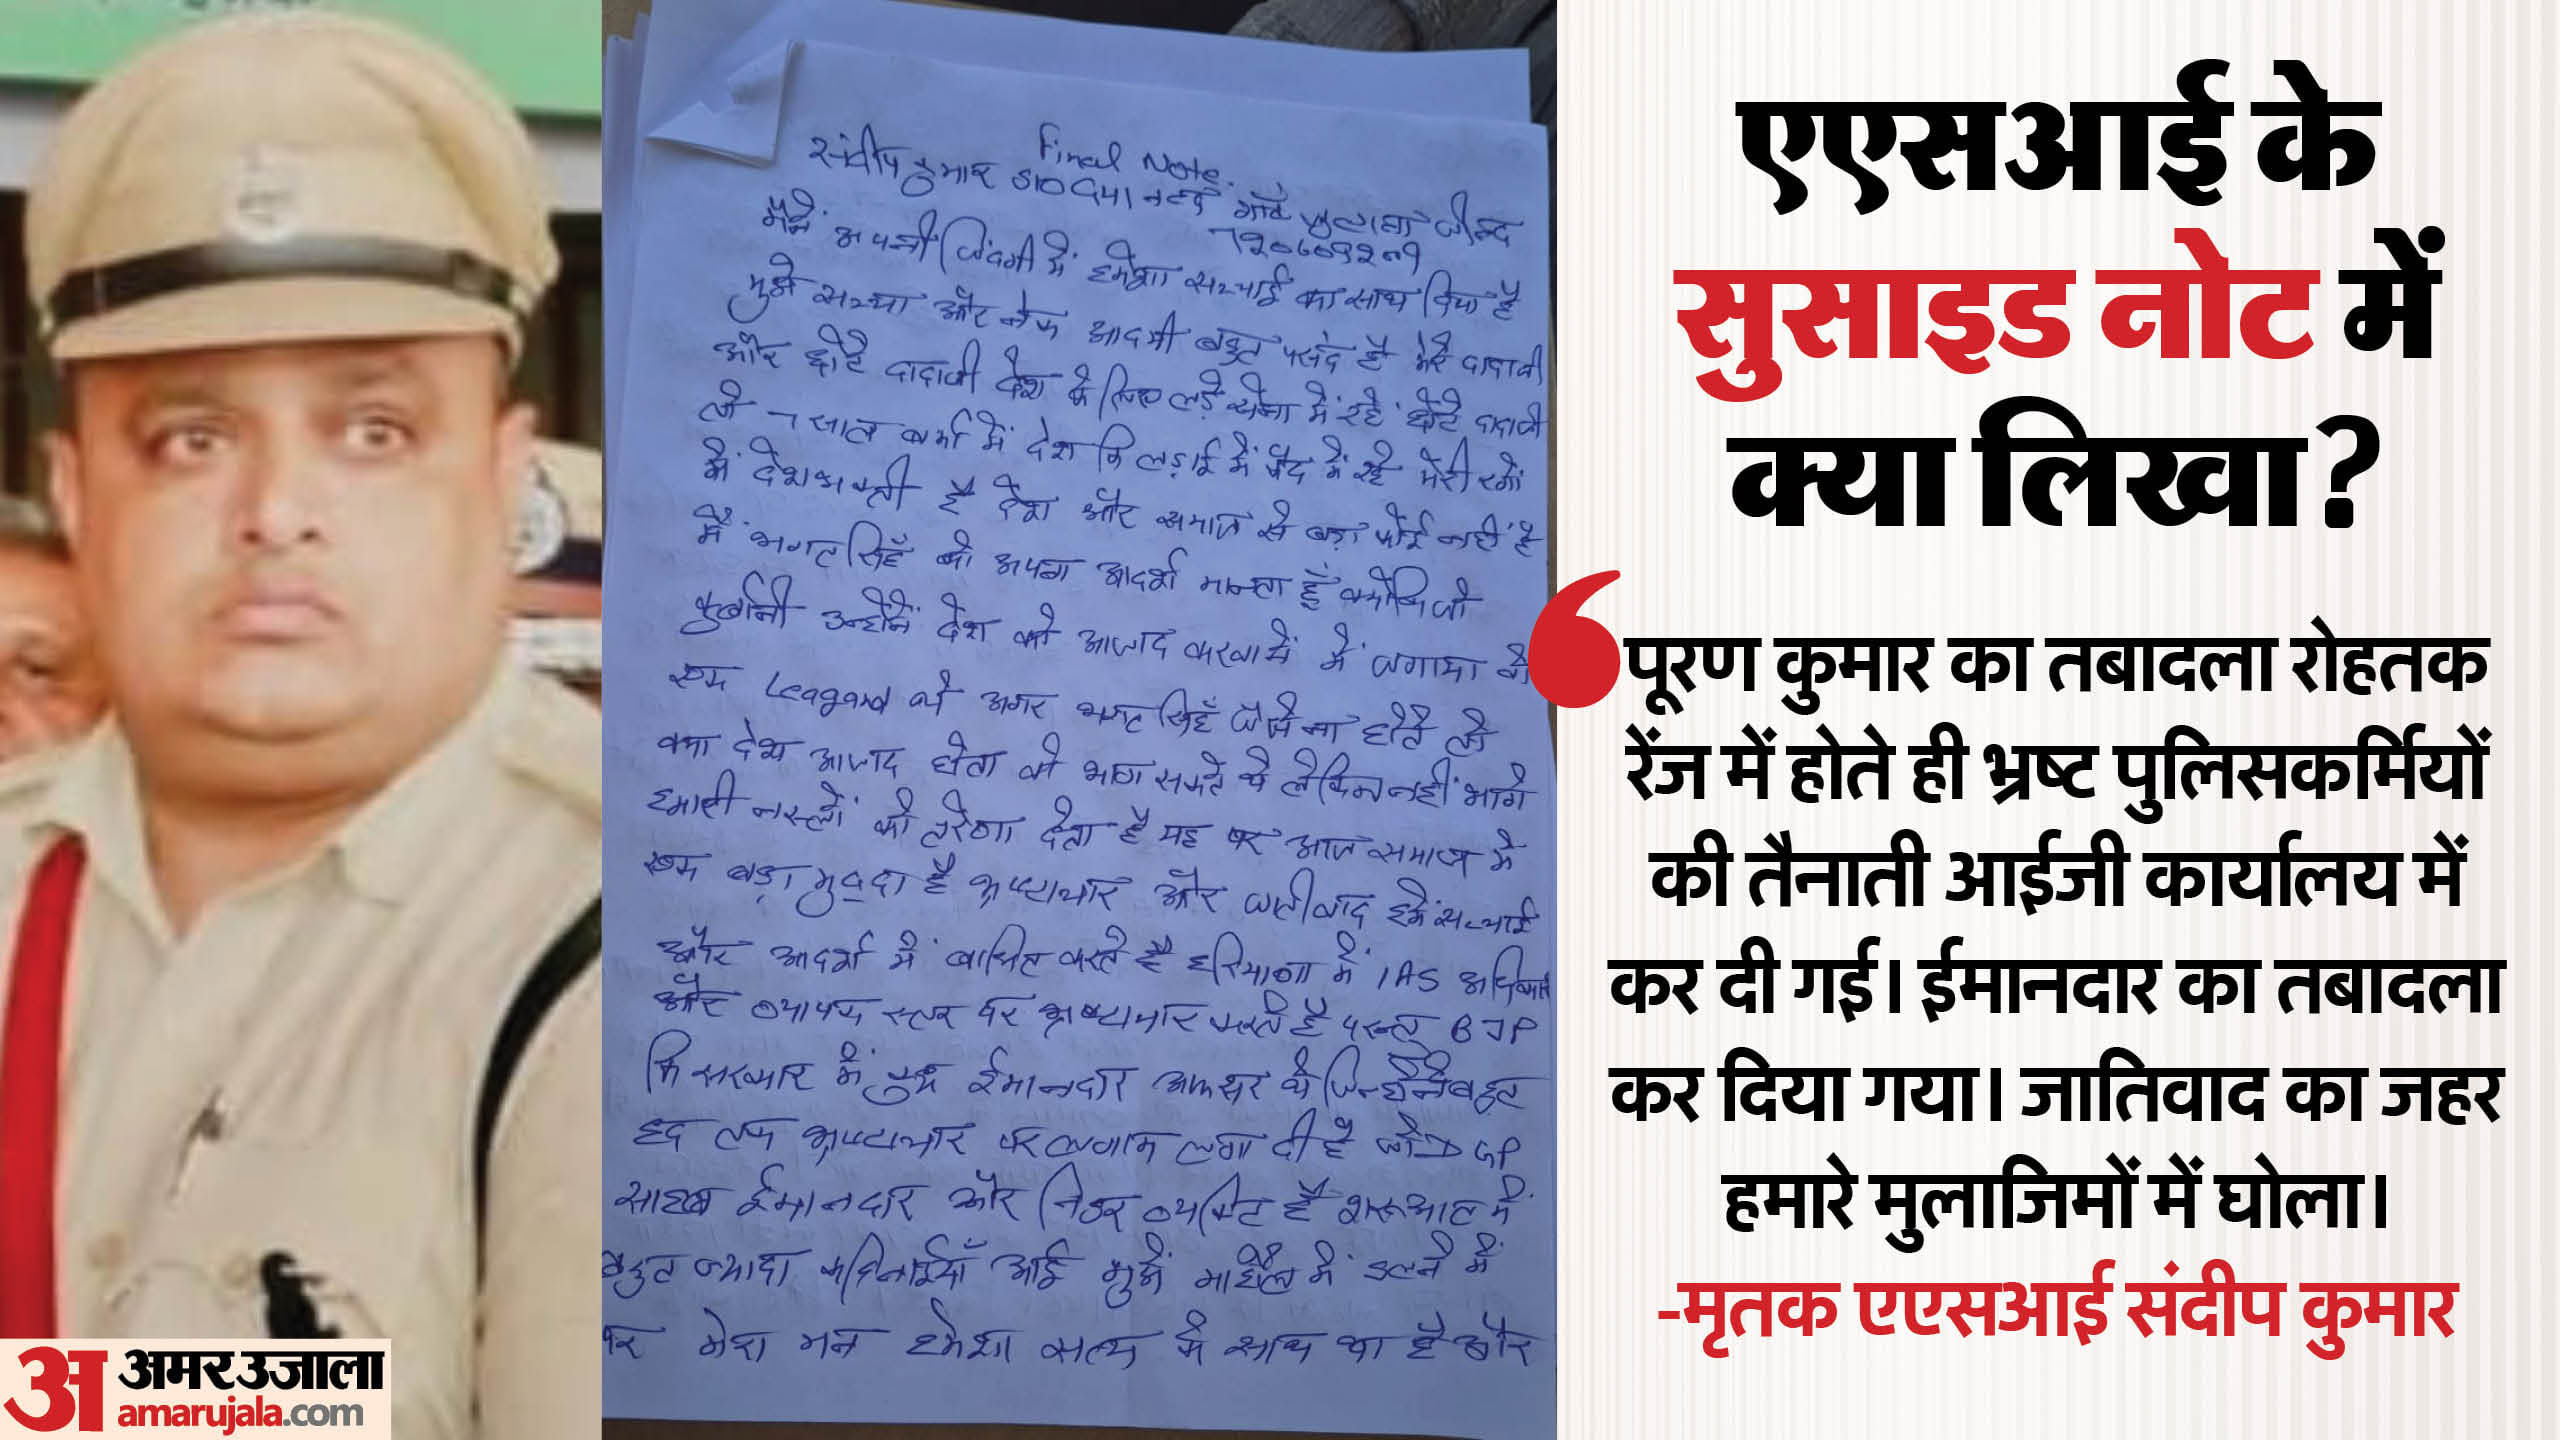 Final Note.
संदीप कुमार S/O दयानन्द गाँव जुलाना जीन्द
मैंने अपनी जिंदगी में हमेशा सच्चाई का साथ दिया है
मुझे सच्चा और नेक आदमी बहुत पसंद है मेरे दादाजी
और छोटे दादाजी देश के लिए लड़े सेना में रहे छोटे दादाजी
तो 7 साल बर्मा में देश कि लड़ाई में कैद में रहे मेरी रगों
में देशभक्ती है देश और समाज से बड़ा कोई नहीं है
मैं भगत सिहँ को अपना आदर्श मानता हूँ क्योंकि जो
कुर्बानी उन्होंने देश को आजाद करवाने में
एक Leagand थे अगर भगत सिहँ जैसे ना होते तो
क्या देश आजाद होता वो भाग सकते थे लेकिन नहीं भागे
हमारी नस्लों को प्रेरणा देता है यह पर आज समाज में
एक बड़ा मुद्दा है भ्रष्टाचार और जातीवाद हमें सच्चाई
और आदर्श में बाधित करते है हरियाणा में IAS
और व्यापक स्तर पर भ्रष्टाचार करते है परन्तु BJP
कि सरकार में कुछ ईमानदार अफसर थे जिन्होंने बहुत
हद तक भ्रष्टाचार पर लगाम लगा दी है जो DGP
साहब ईमानदार और निडर व्यक्ति है शुरूआत में
बहुत ज्यादा कठिनाईयाँ आई मुझे माहौल में ढलने में
पर मेरा मन हमेशा सत्य के साथ था है और
एएसआई के
सुसाइड नोट में
क्या लिखा?
‘पूरण कुमार का तबादला रोहतक
रेंज में होते ही भ्रष्ट पुलिसकर्मियों
की तैनाती आईजी कार्यालय में
कर दी गई। ईमानदार का तबादला
कर दिया गया। जातिवाद का जहर
हमारे मुलाजिमों में घोला।
-मृतक एएसआई संदीप कुमार
अ अमर उजाला
amarujala.com